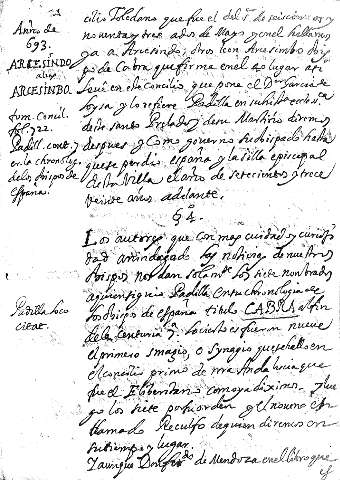 Año de
693.
ARCESINDO
alias
ARCESINBO.
tom. Concil.
fol. 722.
Padill. cent. 7
en la chronolog.
de los obispos de
España.
cilio Toledano que fue el del S. de seiscientos y
noventa y tres a dos de Mayo y en el hallamos
ya a Arcesindo, otro con Arcesimbo obis
po de Cabra que firma en el lugar
en este Concilio, que pone el Dor. Garcia de
Loysa y lo refiere Padilla en su historia
de este santo Prelado y de su Martirio diremos
despues, y Como governo su obispado hasta
que se perdio españa y la silla episcopal
de esta Villa el año de setecientos y trece
veinte años adelante.
§ 4.
Los autores que con mas cuidado y curiosi
dad an indagado las noticias de nuestros
obispos, no dan solam.te los siete nombrados
Padilla en su chronologia de
los obispos de españa titulo CABRA al fin
de la centuria 7. los cuales fueron nueve
el primero smagio, o Synagio que se hallo en
el concilio primo de nra Andalucia que
fue el Eliberitano como ya diximos. Y lue
go los siete por su orden y el noveno
llamado Reculfo de quien diremos en
su tiempo y lugar.
Padilla loco
citat.
Y aunque Don Fer.do de Mendoza en el libro que